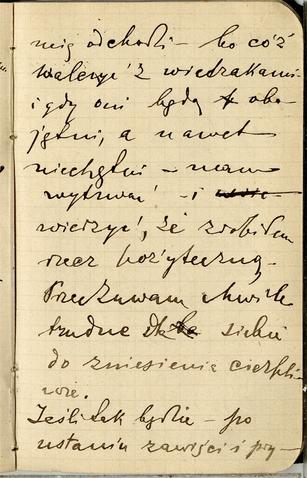 mię odchodzi – bo cóż
walczyć z wiedzakami
i gdy oni będą obo
jętni, a nawet
niechętni – mam
wytrwać – i
wierzyć, że zrobiłem
rzecz pożyteczną.
Przeżuwam chwile
trudne dla siebie
do zniesienia cierpli
wie.
Jeśli tak będzie – po
ustaniu zawiści i przy-